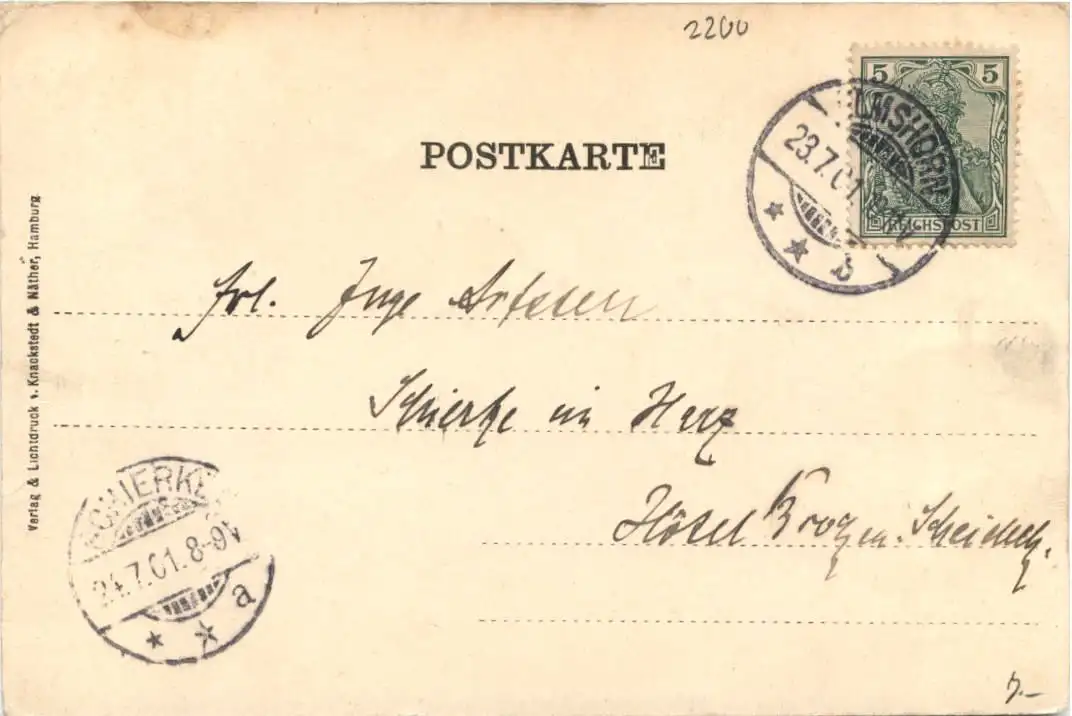 2200
5 5
REICHSPOST
ELMSHORN
23.7.01.
b
POSTKARTE
Frl. Inge
Schierke im Harz
Hôtel
SCHIERKE
24.7.01.8-9V
a
Verlag & Lichtdruck v. Knackstedt & Näther, Hamburg
7.–